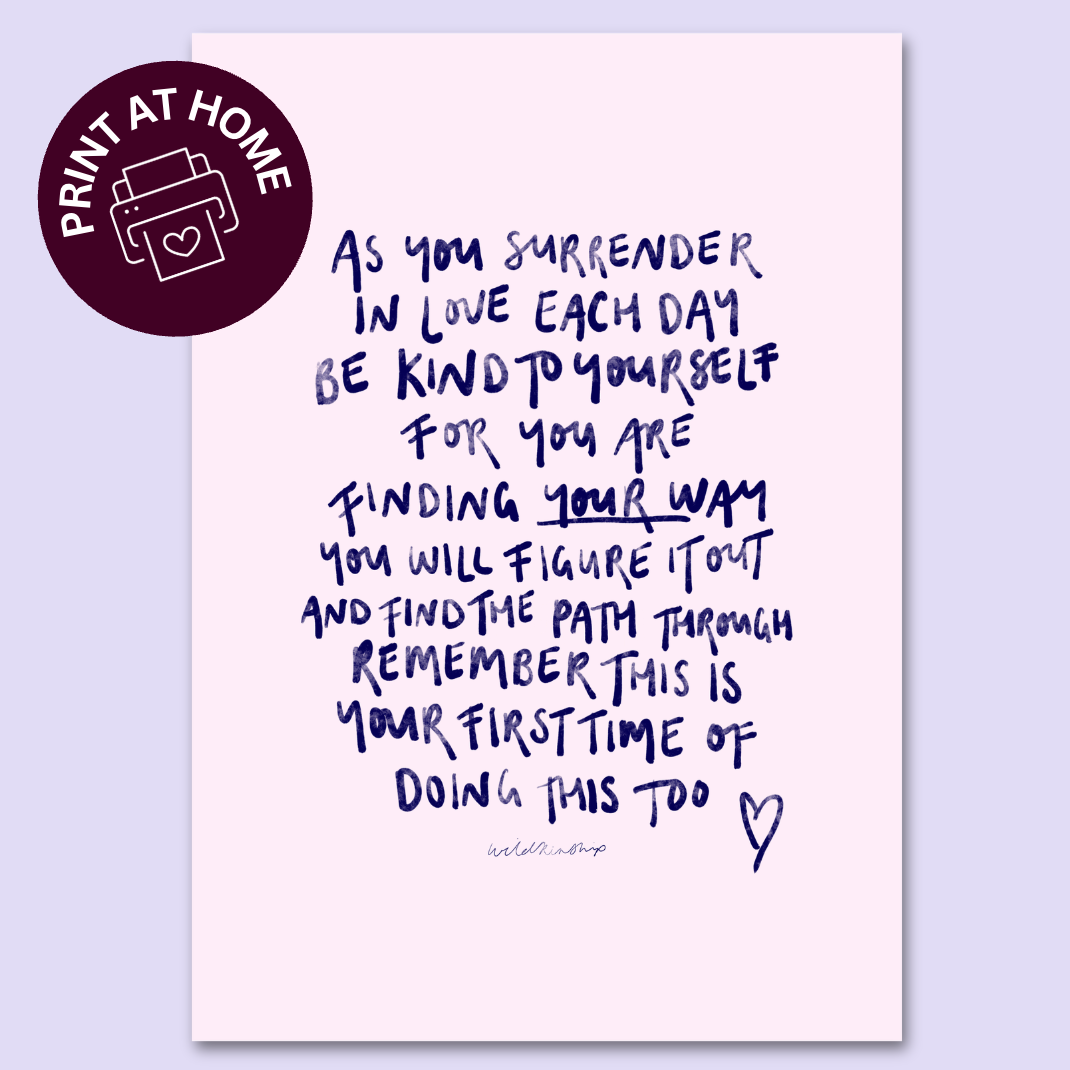 PRINT AT HOME
AS YOU SURRENDER
IN LOVE EACH DAY
BE KIND TO YOURSELF
FOR YOU ARE
FINDING YOUR WAY
YOU WILL FIGURE IT OUT
AND FIND THE PATH THROUGH
REMEMBER THIS IS
YOUR FIRST TIME OF
DOING THIS TOO
wildkinship